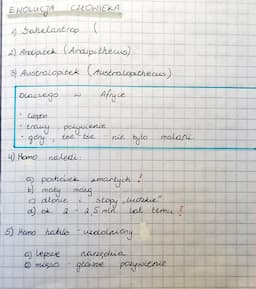 EWOLUCJA CZŁOWIEKA
1) Sahelantrop (
2) Ardipitek (Ardipithecus)
3) Australopitek (Australopithecus)
Dlaczego w Afryce
· ciepło
· trawy, pożywienie
· góry, nie było malarii
4) Homo naledi:
a) pochówek zmarłych !
b) mały mózg
c) dłonie i stopy „ludzkie”
d) ok 2 - 2,5 mln lat temu !
5) Homo habilis - uzdolniony
a) lepsze narzędzia
b) mięso - główne pożywienie